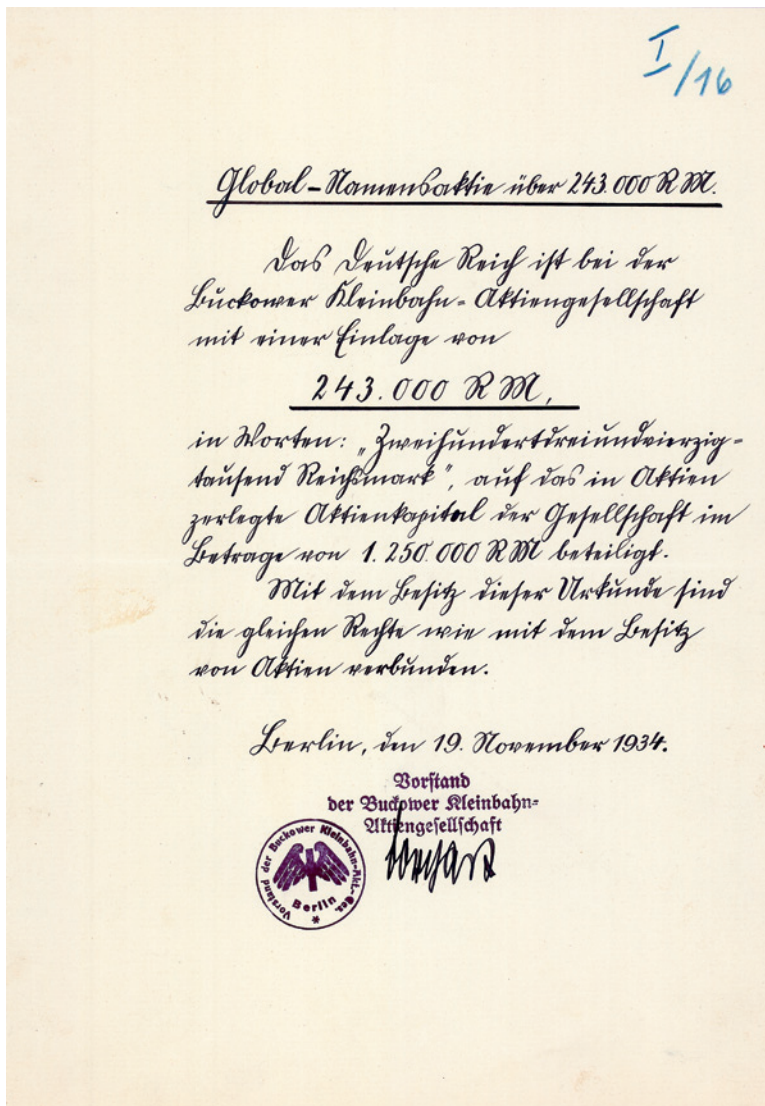 I/16
Global-Namensaktie über 243.000 RM.
Das Deutsche Reich ist bei der
Buckower Kleinbahn-Aktiengesellschaft
mit einer Einlage von
243.000 RM,
in Worten: „Zweihundertdreiundvierzig-
tausend Reichsmark", auf das in Aktien
zerlegte Aktienkapital der Gesellschaft im
Betrage von 1.250.000 RM beteiligt.
Mit dem Besitz dieser Urkunde sind
die gleichen Rechte wie mit dem Besitz
von Aktien verbunden.
Berlin, den 19. November 1934.
Vorstand
der Buckower Kleinbahn-
Aktiengesellschaft
Vorstand der Buckower Kleinbahn-Akt.-Ges.
Berlin